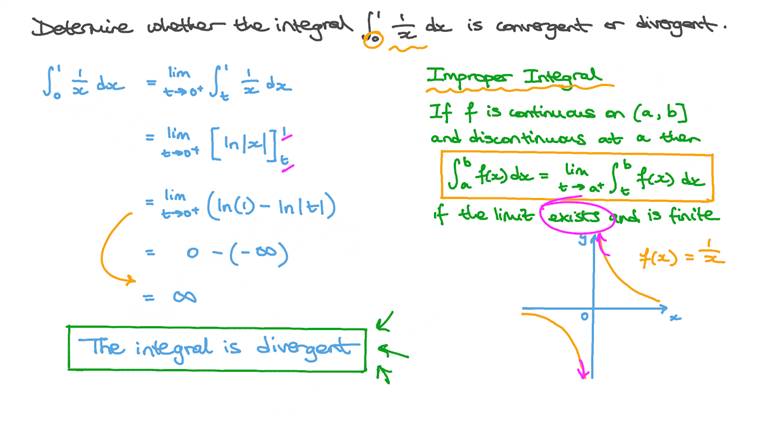 Determine whether the integral ∫₀¹ 1/x dx is convergent or divergent.
∫₀¹ 1/x dx = lim t→0⁺ ∫ₜ¹ 1/x dx
= lim t→0⁺ [ln|x|]ₜ¹
= lim t→0⁺ (ln(1) - ln|t|)
= 0 - (-∞)
= ∞
The integral is divergent
Improper Integral
If f is continuous on (a, b]
and discontinuous at a then
∫ₐᵇ f(x) dx = lim t→a⁺ ∫ₜᵇ f(x) dx
if the limit exists and is finite
y
f(x) = 1/x
0
x